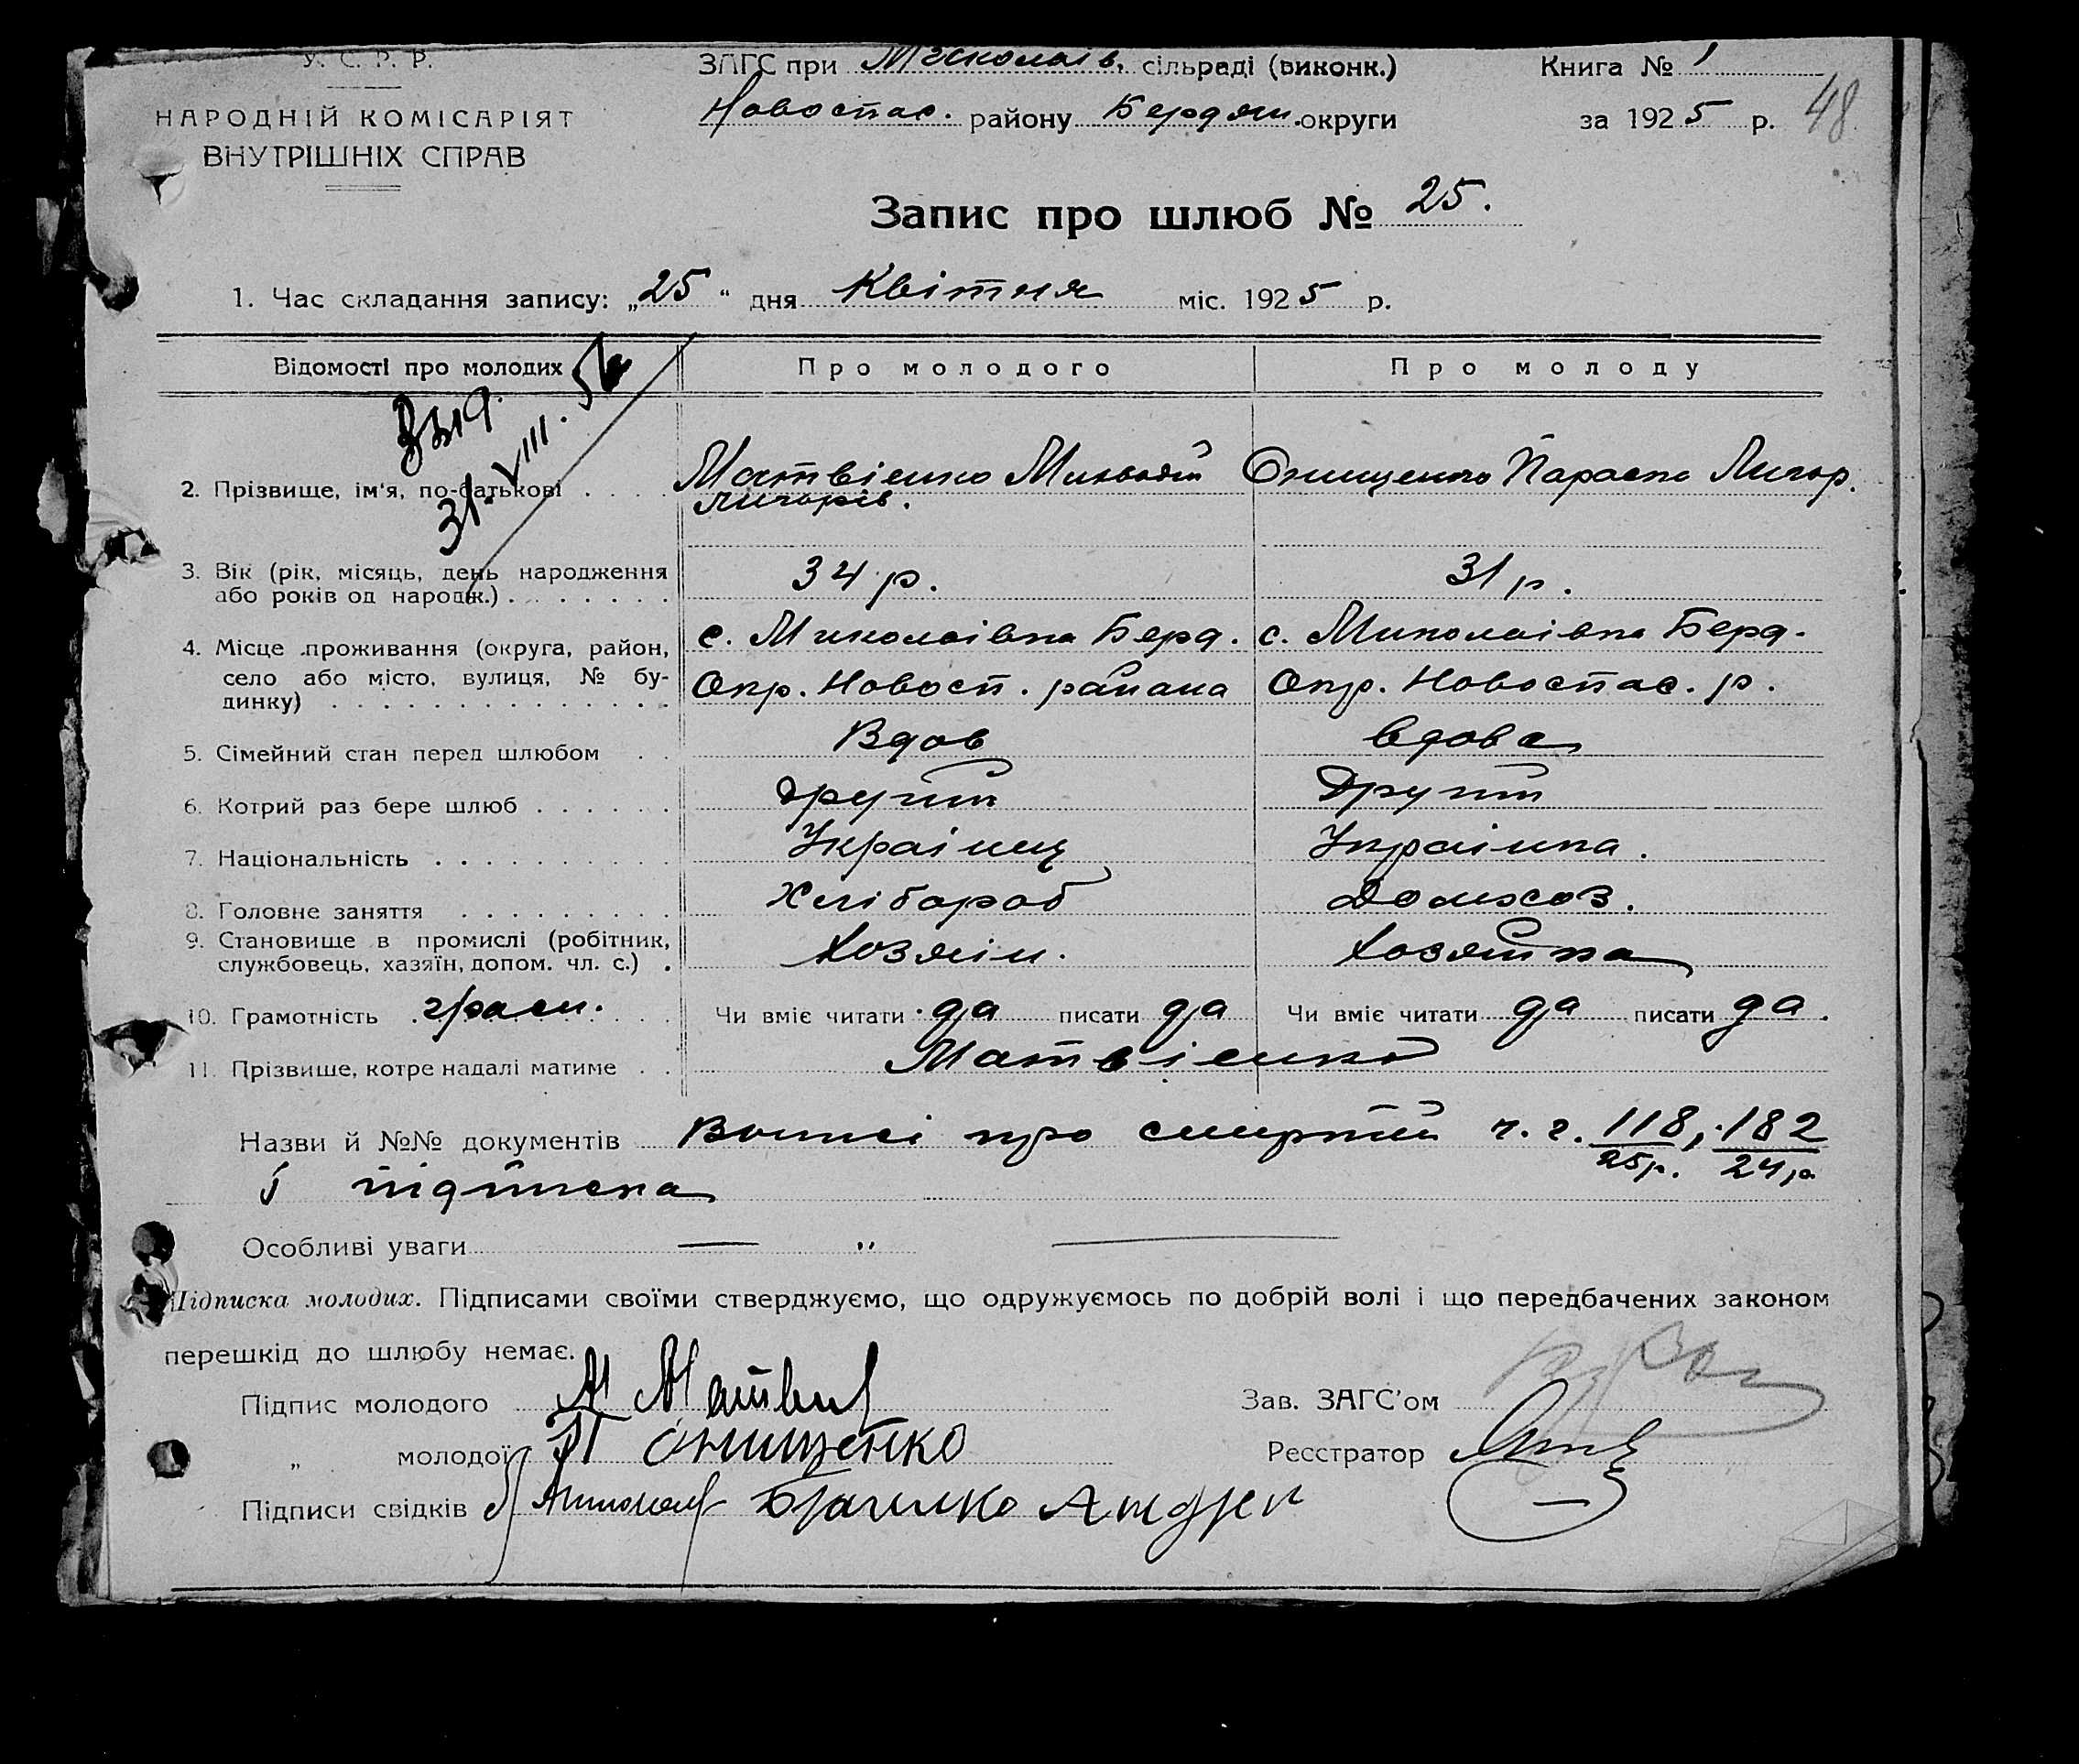 У. С. Р. Р.
НАРОДНІЙ КОМІСАРІЯТ
ВНУТРІШНІХ СПРАВ
ЗАГС при Миколаів. сільраді (виконк.)
Новоспас. району Бердян. округи
Книга № 1
за 1925 р.
48
Запис про шлюб № 25.
1. Час складання запису: „25" дня Квітня міс. 1925 р.
Відомості про молодих
Про молодого
Про молоду
31.VIII.56
2. Прізвище, ім'я, по-батькові . . . .
Матвієнко
Онищенко Параска Лигор.
Лигорів.
3. Вік (рік, місяць, день народження
або років од народж.) . . . . . . .
34 р.
31 р.
4. Місце проживання (округа, район,
село або місто, вулиця, № бу-
динку) . . . . . . . . . . . . . .
с. Миколаівка Берд.
Окр. Новосп. района
с. Миколаівка Берд.
Окр. Новоспас. р.
5. Сімейний стан перед шлюбом . .
Вдов
вдова
6. Котрий раз бере шлюб . . . . . .
другий
Другий
7. Національність . . . . . . . . . .
Украінец
Украінка.
8. Головне заняття . . . . . . . . .
Хлібороб
Домхоз.
9. Становище в промислі (робітник,
службовець, хазяїн, допом. чл. с.) .
Хозяін.
Хозяйка
10. Грамотність грам.
Чи вміє читати да писати да
Чи вміє читати да писати да.
11. Прізвище, котре надалі матиме . .
Матвієнко
Назви й №№ документів Вописі про смертий ч.ч. 118/25р., 182/24р
і підписка
Особливі уваги — „ —
Підписка молодих. Підписами своїми стверджуємо, що одружуємось по добрій волі і що передбачених законом
перешкід до шлюбу немає.
Підпис молодого М Матвіє
Зав. ЗАГС'ом
„ молодої П Онищенко
Реєстратор
Підписи свідків Андрей